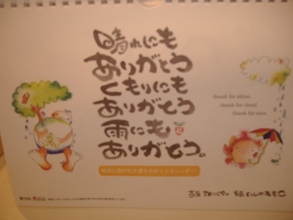 晴れにも
ありがとう
くもりにも
ありがとう
雨にも
ありがとう。
thank for shine
thank for cloud
thank for rain